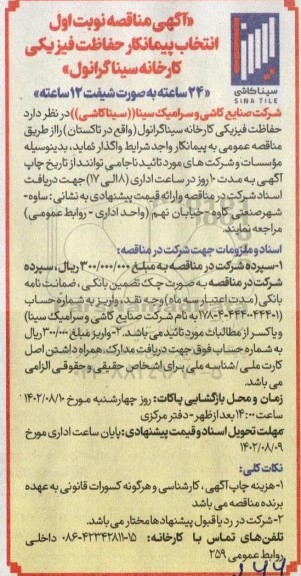 «آگهی مناقصه نوبت اول
انتخاب پیمانکار حفاظت فیزیکی
کارخانه سیناگرانول»
«۲۴ ساعته به صورت شیفت ۱۲ ساعته»
سیناکاشی
SINA TILE
شرکت صنایع کاشی و سرامیک سینا ((سیناکاشی)) در نظر دارد
حفاظت فیزیکی کارخانه سیناگرانول (واقع در تاکستان) را از طریق
مناقصه عمومی به پیمانکار واجد شرایط واگذار نماید، بدینوسیله
مؤسسات و شرکت های مورد تائید ناجا می توانند از تاریخ چاپ
آگهی به مدت ۱۰ روز در ساعت اداری (۸ الی ۱۷) جهت دریافت
اسناد شرکت در مناقصه و ارائه قیمت پیشنهادی به نشانی: ساوه -
شهر صنعتی کاوه - خیابان نهم (واحد اداری - روابط عمومی)
مراجعه نمایند.
اسناد و ملزومات جهت شرکت در مناقصه:
۱- سپرده شرکت در مناقصه به مبلغ ۳۰۰/۰۰۰/۰۰۰ ریال، سپرده
شرکت در مناقصه به صورت چک تضمین بانکی، ضمانت نامه
بانکی (مدت اعتبار سه ماه) وجه نقد، واریز به شماره حساب
(۱۷۸-۴-۰۴۴۴-۰۴۴۴۰۱) به نام شرکت صنایع کاشی و سرامیک سینا)
و یا کسر از مطالبات مورد تائید می باشد. ۲- واریز مبلغ ۳۰۰/۰۰۰ ریال
به شماره حساب فوق جهت دریافت مدارک، همراه داشتن اصل
کارت ملی / شناسه ملی برای اشخاص حقیقی و حقوقی الزامی
می باشد.
زمان و محل بازگشایی پاکات: روز چهارشنبه مورخ ۱۴۰۲/۰۸/۱۰
ساعت ۱۴:۰۰ بعد از ظهر - دفتر مرکزی
مهلت تحویل اسناد و قیمت پیشنهادی: پایان ساعت اداری مورخ
۱۴۰۲/۰۸/۰۹
نکات کلی:
۱- هزینه چاپ آگهی، کارشناسی و هرگونه کسورات قانونی به عهده
برنده مناقصه می باشد
۲- شرکت در رد یا قبول پیشنهادها مختار می باشد.
تلفن های تماس با کارخانه: ۱۵-۴۲۳۴۲۸۱۱-۰۸۶ داخلی
روابط عمومی ۲۵۹